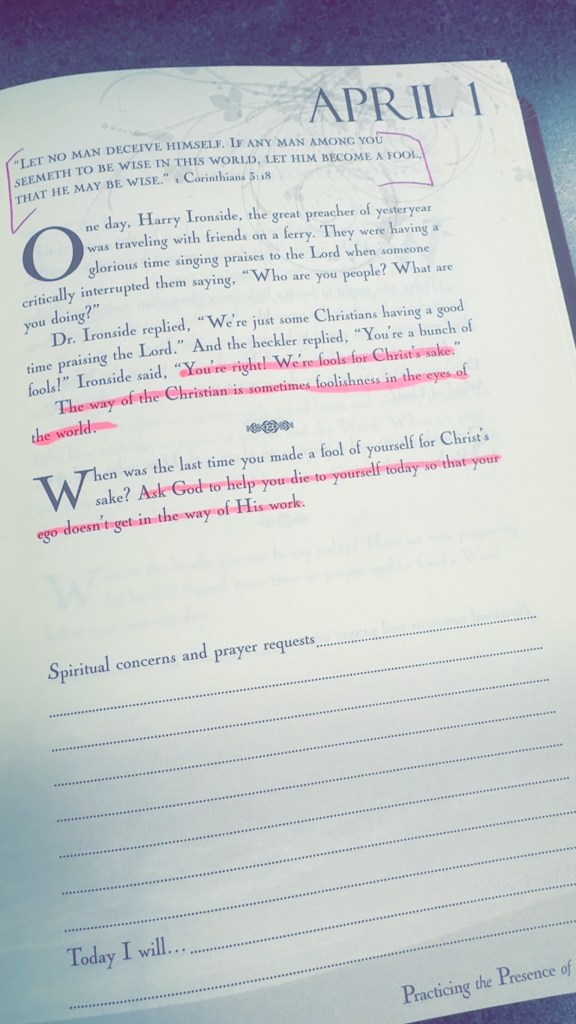 APRIL 1
"LET NO MAN DECEIVE HIMSELF. IF ANY MAN AMONG YOU
SEEMETH TO BE WISE IN THIS WORLD, LET HIM BECOME A FOOL,
THAT HE MAY BE WISE." 1 Corinthians 3:18
One day, Harry Ironside, the great preacher of yesteryear
was traveling with friends on a ferry. They were having a
glorious time singing praises to the Lord when someone
critically interrupted them saying, "Who are you people? What are
you doing?"
Dr. Ironside replied, "We're just some Christians having a good
time praising the Lord." And the heckler replied, "You're a bunch of
fools!" Ironside said, "You're right! We're fools for Christ's sake."
The way of the Christian is sometimes foolishness in the eyes of
the world.
When was the last time you made a fool of yourself for Christ's
sake? Ask God to help you die to yourself today so that your
ego doesn't get in the way of His work.
Spiritual concerns and prayer requests
Today I will...
Practicing the Presence of